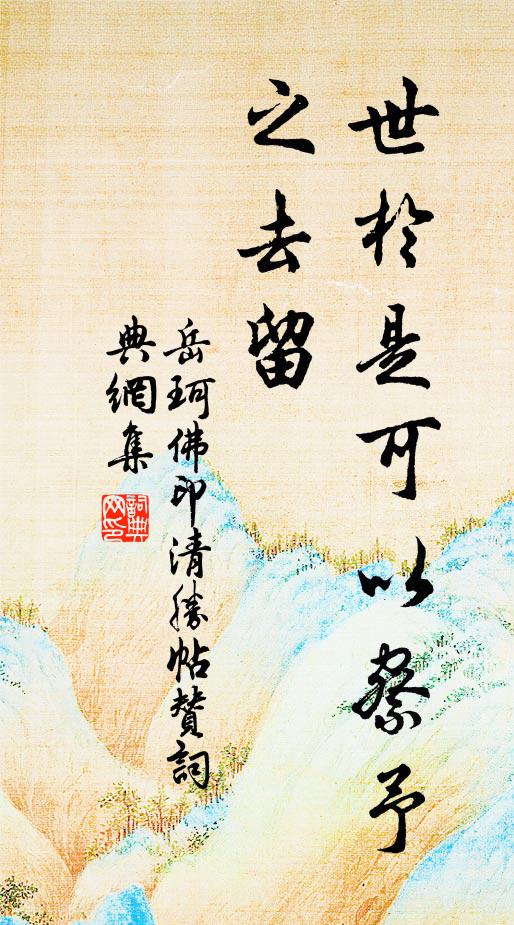 世於是可以察予
之去留
岳珂佛印清勝帖贊詞
典網集
詞典網印